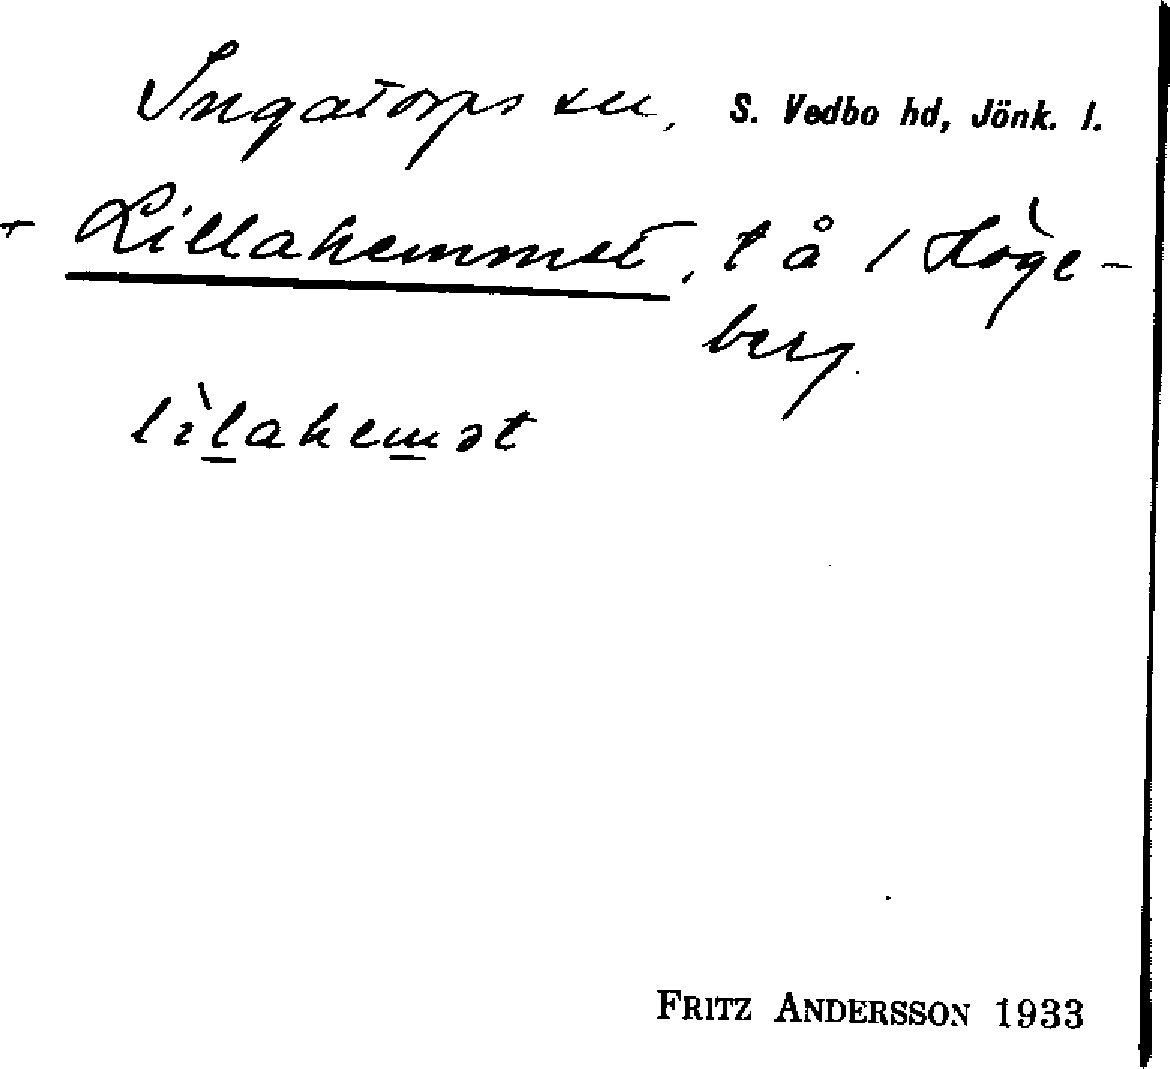 Ingatorps sn, S. Vedbo hd, Jönk. l.
+ Lillahemmet, t å 1 Höge-
berg.
lìlahemət
FRITZ ANDERSSON 1933